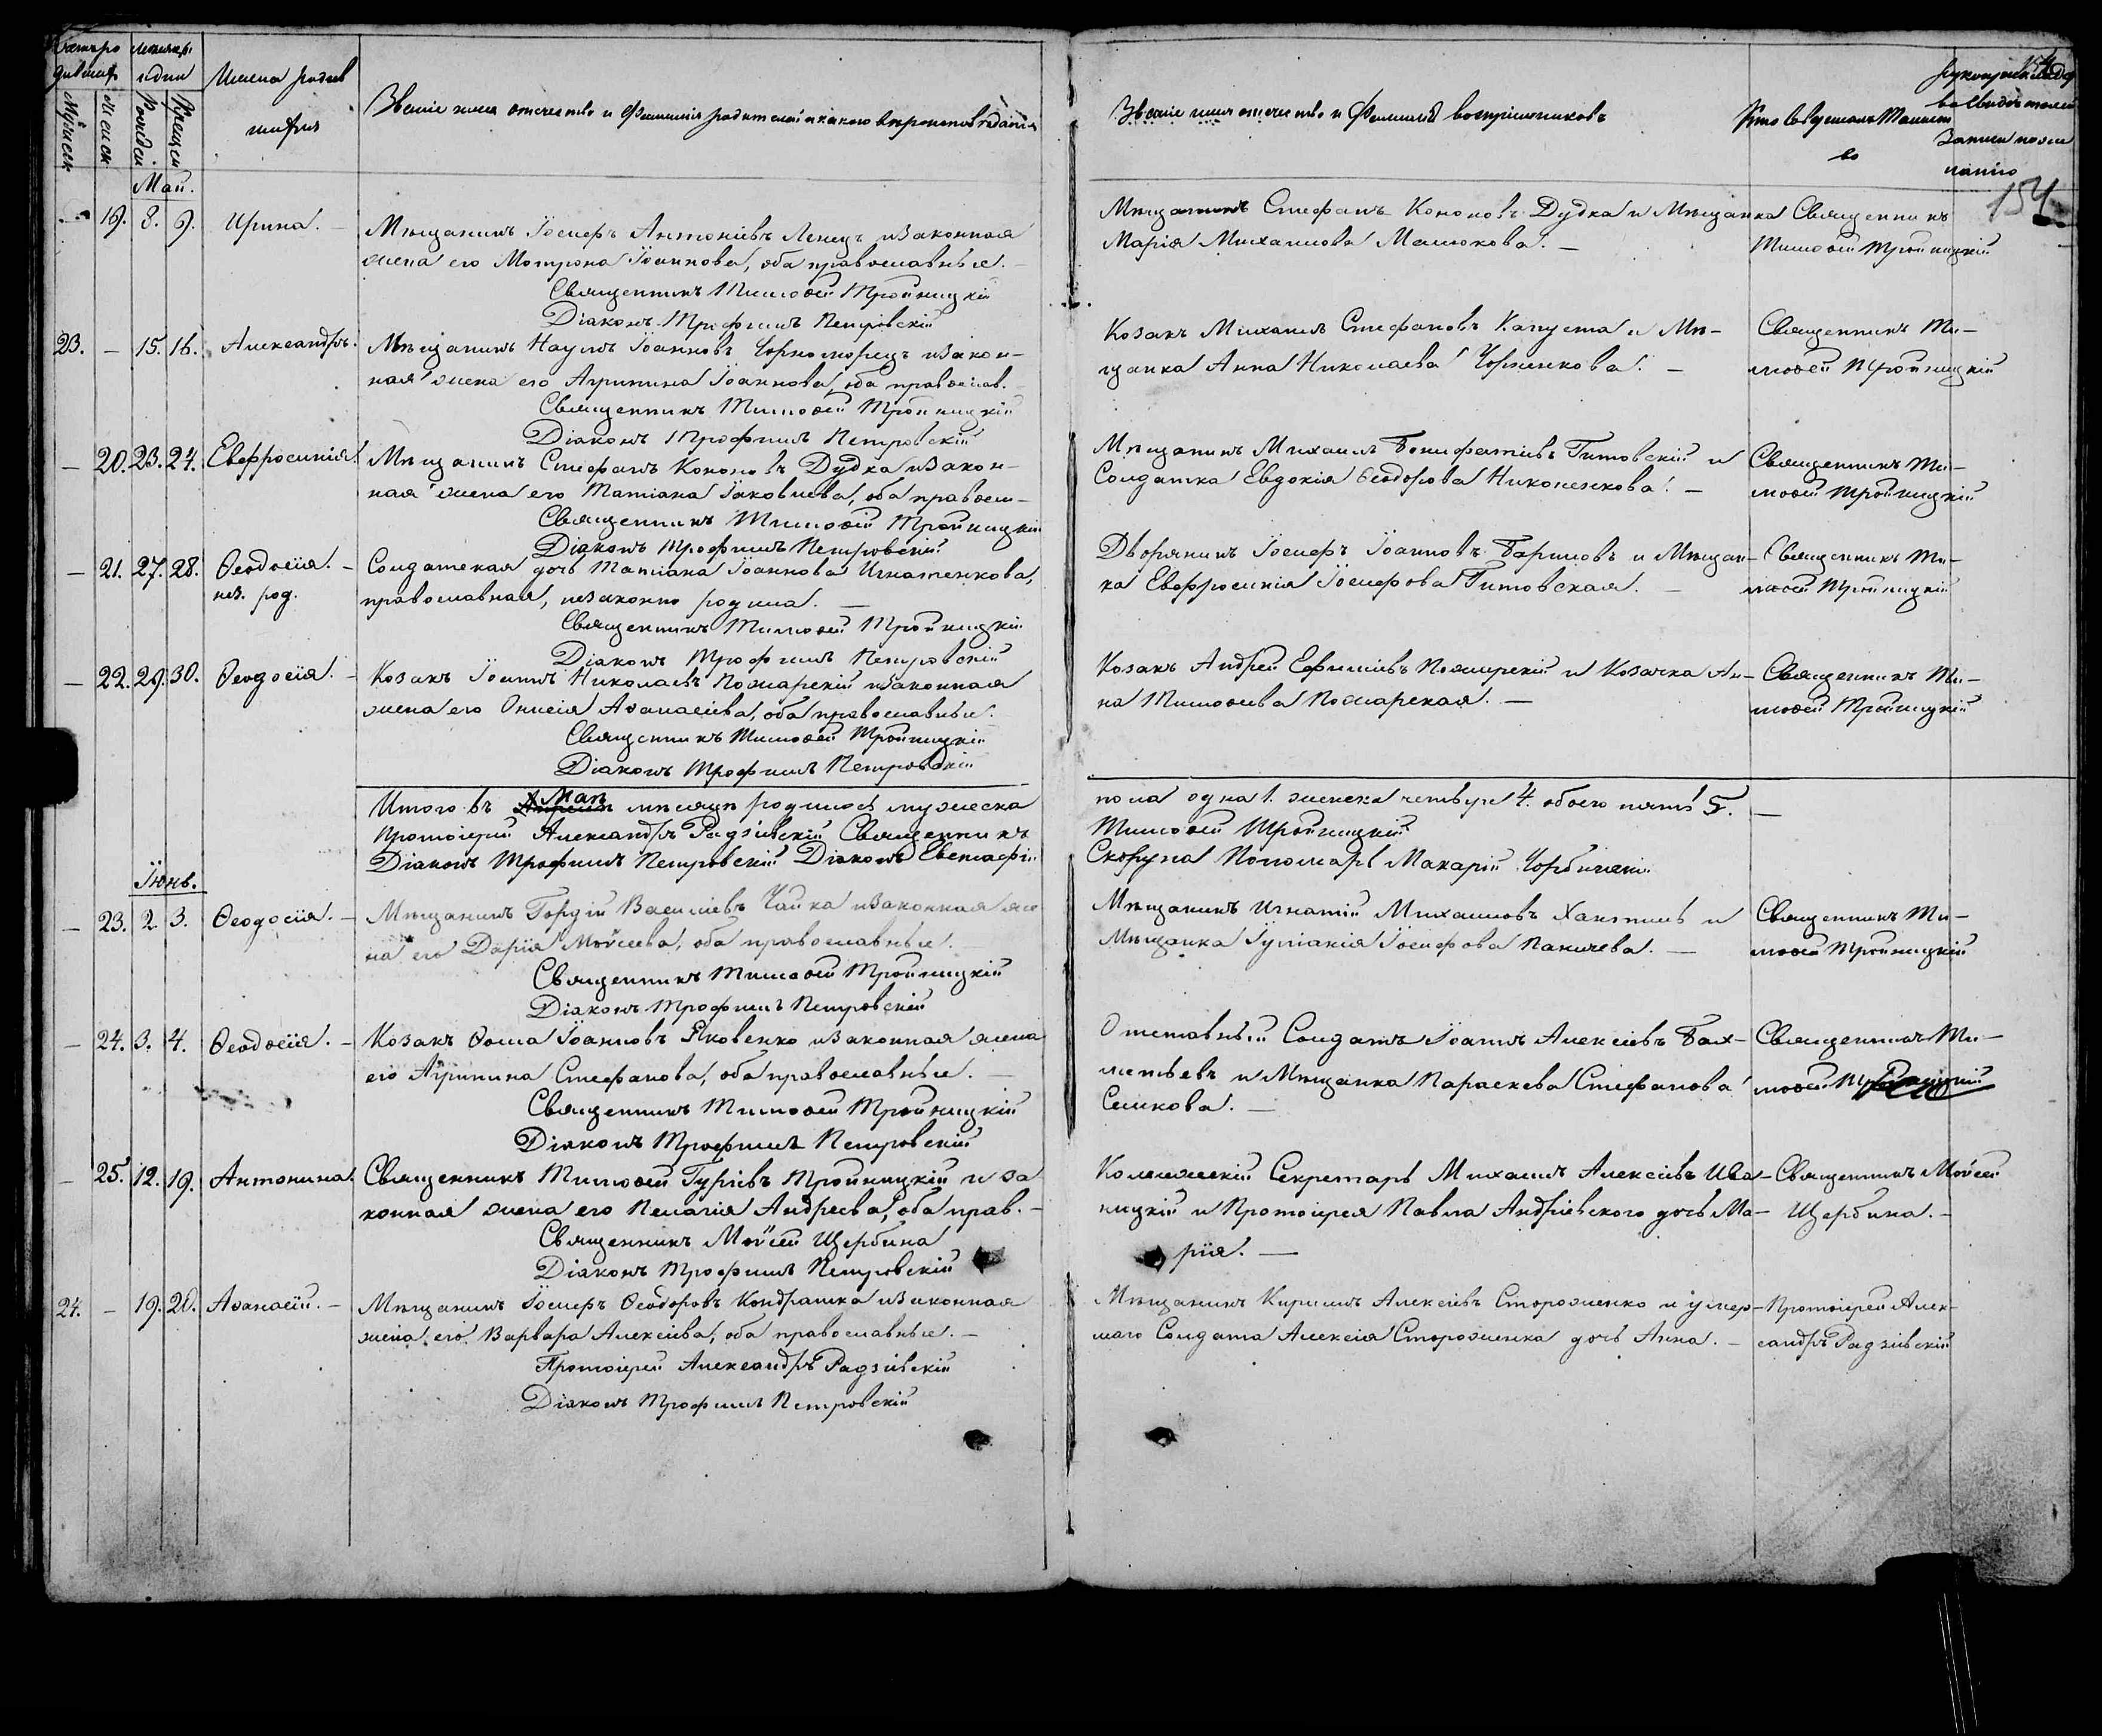 Имена родив
шихся
Званіе имя отчество и фамилія родителей и какого вѣроисповѣданія
Званіе имя отчество и фамилія воспріемниковъ
Кто совершалъ Таинст
во
Май.
154
19. 8. 9. Ирина. –
Мѣщанинъ Іосифъ Антоніевъ Ленецъ и законная
жена его Матрона Іоаннова, оба православные. –
Священникъ Тимоѳей Тройницкій
Діаконъ Трофимъ Петровскій
Мѣщанинъ Стефанъ Кононовъ Дудка и Мѣщанка
Марія Михаилова Малюкова. –
Священникъ
Тимоѳей Тройницкій
23. – 15. 16. Александръ.
Мѣщанинъ Наумъ Іоанновъ Чорноморецъ и закон-
ная жена его Агрипина Іоаннова, оба православ.
Священникъ Тимоѳей Тройницкій
Діаконъ Трофимъ Петровскій
Козакъ Михаилъ Стефановъ Капуста и Мѣ-
щанка Анна Николаева Чорненкова. –
Священникъ Ти-
моѳей Тройницкій
– 20. 23. 24. Евфросинія.
Мѣщанинъ Стефанъ Кононовъ Дудка и закон-
ная жена его Татіана Іаковлева, оба правосл. –
Священникъ Тимоѳей Тройницкій
Діаконъ Трофимъ Петровскій
Мѣщанинъ Михаилъ Бонифатіевъ Гитовскій и
Солдатка Евдокія Ѳеодорова Никоненкова. –
Священникъ Ти-
моѳей Тройницкій
– 21. 27. 28. Ѳеодосія. –
нез. род.
Солдатская дочь Татіана Іоаннова Игнатенкова,
православная, незаконно родила. –
Священникъ Тимоѳей Тройницкій
Діаконъ Трофимъ Петровскій
Дворянинъ Іосифъ Іоанновъ Бариловъ и Мѣщан-
ка Евфросинія Іосифова Гитовская. –
Священникъ Ти-
моѳей Тройницкій
– 22. 29. 30. Ѳеодосія. –
Козакъ Іоаннъ Николаевъ Пожарскій и законная
жена его Онисія Аѳанасіева, оба православные.
Священникъ Тимоѳей Тройницкій
Діаконъ Трофимъ Петровскій
Козакъ Андрей Ефиміевъ Пожарскій и Козачка Ан-
на Тимоѳеева Пожарская. –
Священникъ Ти-
моѳей Тройницкій
Итого въ Маѣ мѣсяцѣ родилось мужеска
пола одна 1. женска четыре 4. обоего пять 5. –
Протоіерей Александръ Радзіевскій Священникъ
Тимоѳей Тройницкій
Діаконъ Трофимъ Петровскій Діаконъ Евстафій
Скорупа Пономарь Макарій
Іюнь.
– 23. 2. 3. Ѳеодосія. –
Мѣщанинъ Гордій Василіевъ Чайка и законная же
на его Дарія Мойсеева, оба православные.
Священникъ Тимоѳей Тройницкій
Діаконъ Трофимъ Петровскій
Мѣщанинъ Игнатій Михаиловъ и
Мѣщанка Іуліанія Іосифова Паничева. –
Священникъ Ти-
моѳей Тройницкій
– 24. 3. 4. Ѳеодосія. –
Козакъ Ѳома Іоанновъ Яковенко и законная жена
его Агрипина Стефанова, оба православные. –
Священникъ Тимоѳей Тройницкій
Діаконъ Трофимъ Петровскій
Отставный Солдатъ Іоаннъ Алексіевъ Бах-
метьевъ и Мѣщанка Параскева Стефанова
Семкова. –
Священникъ Ти-
моѳей Тройницкій
– 25. 12. 19. Антонина.
Священникъ Тимоѳей Гуріевъ Тройницкій и за
конная жена его Пелагія Андреева, оба прав. –
Священникъ Мойсей Щербина
Діаконъ Трофимъ Петровскій
Коллежскій Секретарь Михаилъ Алексіевъ Ива-
ницкій и Протоіерея Павла Андріевского дочь Ма-
рія. –
Священникъ Мойсей
Щербина. –
24. – 19. 20. Аѳанасій. –
Мѣщанинъ Іосифъ Ѳеодоровъ Кондрашка и законная
жена его Варвара Алексіева, оба православные. –
Протоіерей Александръ Радзіевскій
Діаконъ Трофимъ Петровскій
Мѣщанинъ Кириллъ Алексіевъ Стороженко и умер-
шаго Солдата Алексія Стороженка дочь Анна. –
Протоіерей Алек-
сандръ Радзіевскій